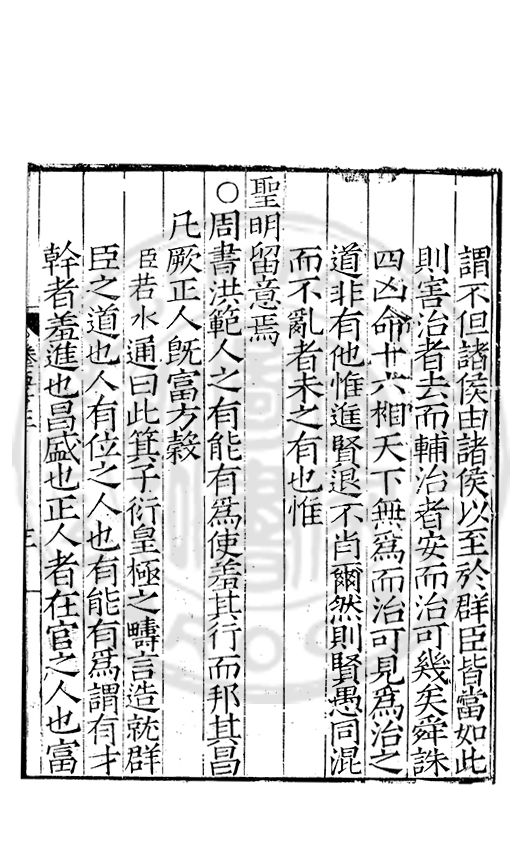 謂不但諸侯由諸侯以至於群臣皆當如此
則害治者去而輔治者安而治可幾矣舜誅
四凶命廿六相天下無爲而治可見爲治之
道非有他惟進賢退不肖爾然則賢愚同混
而不亂者未之有也惟
聖明留意焉
○周書洪範人之有能有爲使羞其行而邦其昌
凡厥正人既富方榖
臣若水通曰此箕子衍皇極之疇言造就群
臣之道也人有位之人也有能有爲謂有才
幹者羞進也昌盛也正人者在官之人也富